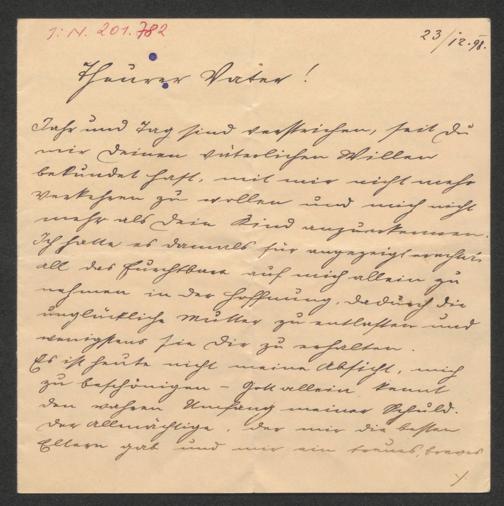 I: N. 201.782
23/12.98.
Theurer Vater!
Jahr und Tag sind verstrichen, seit Du
mir Deinen väterlichen Willen
bekundet hast, mit mir nicht mehr
verkehren zu wollen und mich nicht
mehr als Dein Kind anzuerkennen.
Ich hatte es damals für angezeigt erachtet
all das Furchtbare auf mich allein zu
nehmen in der Hoffnung, dadurch die
unglückliche Mutter zu entlasten und
wenigstens sie Dir zu erhalten.
Es ist heute nicht meine Absicht, mich
zu beschönigen – Gott allein kennt
den wahren Umfang meiner Schuld.
Der Allmächtige, der mir die besten
Eltern gab und mir ein treues, braves